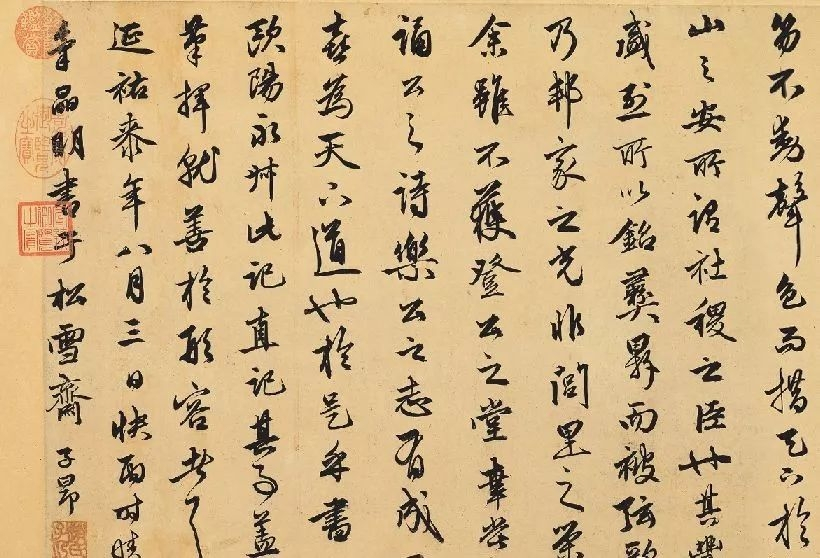 笏不動聲色而措天下於
山之安所謂社稷之臣也其豐
盛烈所以銘彝鼎而被弦歌
乃邦家之光非閭里之榮
余雖不獲登公之堂幸嘗
誦公之詩樂公之志有成而
喜為天下道也於是乎書
歐陽永叔此記直記其事蓋
筆揮就善於形容者
延祐泰年八月三日快雨時晴
晶明書于松雪齋 子昂